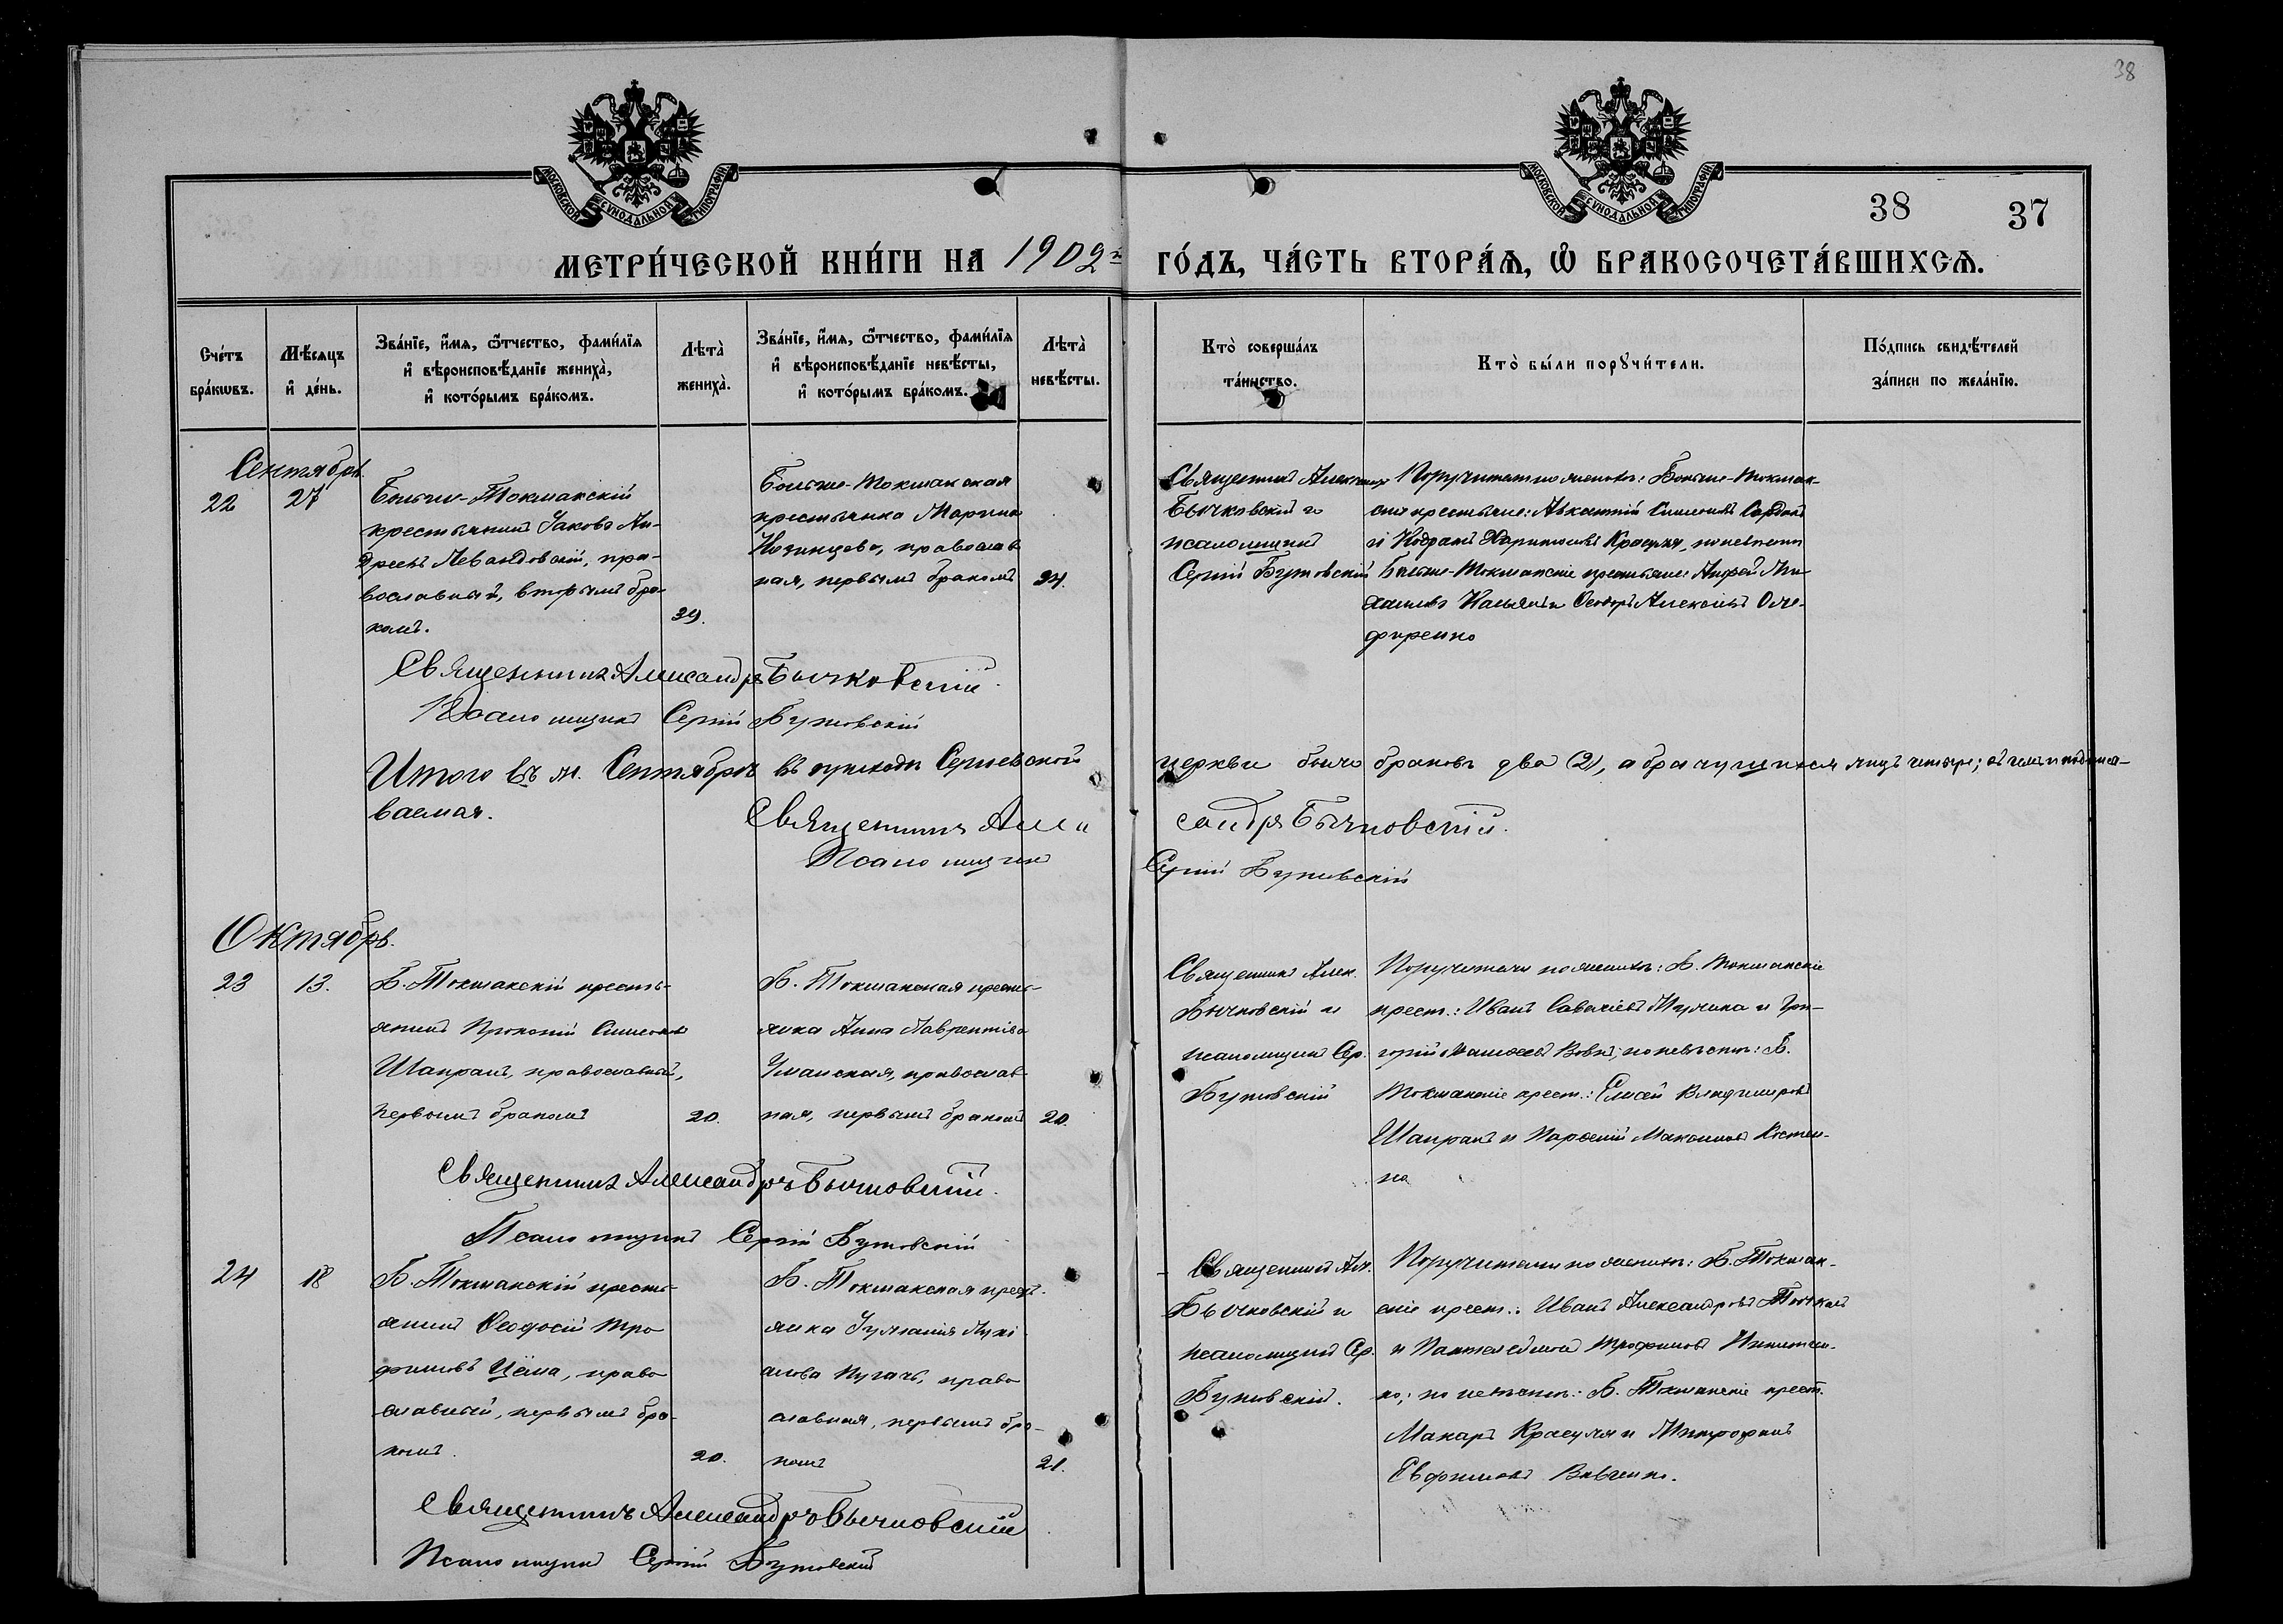 38
МОСКОВСКОЙ СѴНОДАЛЬНОЙ ТИПОГРАФІИ
МОСКОВСКОЙ СѴНОДАЛЬНОЙ ТИПОГРАФІИ
38 37
МЕТРИ́ЧЕСКОЙ КНИ́ГИ НА 1902й ГО́ДЪ, ЧА́СТЬ ВТОРА́Ѧ, Ѽ БРАКОСОЧЕТА́ВШИХСѦ.
Сче́тъ бра́кѡвъ.
Мѣ́сѧцъ и҆ де́нь.
Зва́нїе, и҆́мѧ, ѻ҆́тчество, фами́лїѧ
и҆ вѣроисповѣ́данїе жениха̀,
и҆ кото́рымъ бра́комъ.
Лѣта̀ жениха̀.
Зва́нїе, и҆́мѧ, ѻ҆́тчество, фами́лїѧ
и҆ вѣроисповѣ́данїе невѣ́сты,
и҆ кото́рымъ бра́комъ.
Лѣта̀ невѣ́сты.
Кто̀ соверша́лъ
та́инство.
Кто̀ бы́ли порꙋчи́тели.
По́дпись свидѣ́телей
за́писи по жела́нїю.
Сентябрь
22 27
Больше-Токмакскій
крестьянинъ Іаковъ Ан-
дреевъ Левандовскій, пра-
вославный, вторымъ бра-
комъ.
39.
Больше-Токмакская
крестьянка Марина
православ
ная, первымъ бракомъ
34.
Священникъ
Бычковскій и
псаломщикъ
Сергій Бутовскій
Поручители по женихѣ: Больше-Токмак-
скіе крестьяне:
и Кодратъ Харитоновъ Красуля, по невѣстѣ
Больше-Токмакскіе крестьяне: Андрей Ми-
хаиловъ и Ѳеодоръ Алексѣевъ Оли-
фиренко
Священникъ Александръ Бычковскій
Псаломщикъ Сергій Бутовскій
Итого въ м. Сентябрѣ въ приходѣ Сергіевской церкви было браковъ два (2), а брачущихся лицъ четыре; въ чемъ и подписы-
ваемся.
Священникъ Александръ Бычковскій.
Псаломщикъ Сергій Бутовскій
Октябрь.
23 13.
Б. Токмакскій кресть-
янинъ Прокопій Симеоновъ
Шапранъ, православный,
первымъ бракомъ
20.
Б. Токмакская кресть-
янка Анна Лаврентіева
Уманская, православ-
ная, первымъ бракомъ
20.
Священникъ Алек.
Бычковскій и
псаломщикъ Сер.
Бутовскій
Поручители по женихѣ: Б. Токмакскіе
крест.: Иванъ и Гри-
горій Вовкъ; по невѣстѣ: Б.
Токмакскіе крест.: Елисей Владимировъ
Шапранъ и Максимовъ Костен-
ко
Священникъ Александръ Бычковскій.
Псаломщикъ Сергій Бутовскій
24 18
Б. Токмакскій кресть-
янинъ Ѳеодосій Тро
фимовъ Цёма, право
славный, первымъ бра-
комъ.
20.
Б. Токмакская крест.
янка Іуліанія Луки
анова Пугачъ, право
славная, первымъ бра-
комъ
21.
Священникъ Ал.
Бычковскій и
псаломщикъ Сер.
Бутовскій.
Поручители по женихѣ: Б. Токмак-
скіе крест.: Иванъ Александровъ
и Пантелеймонъ Трофимовъ Никитен-
ко; по невѣстѣ: Б. Токмакскіе крест.
Макаръ Красуля и Митрофанъ
Евфимовъ
Священникъ Александръ Бычковскій
Псаломщикъ Сергій Бутовскій